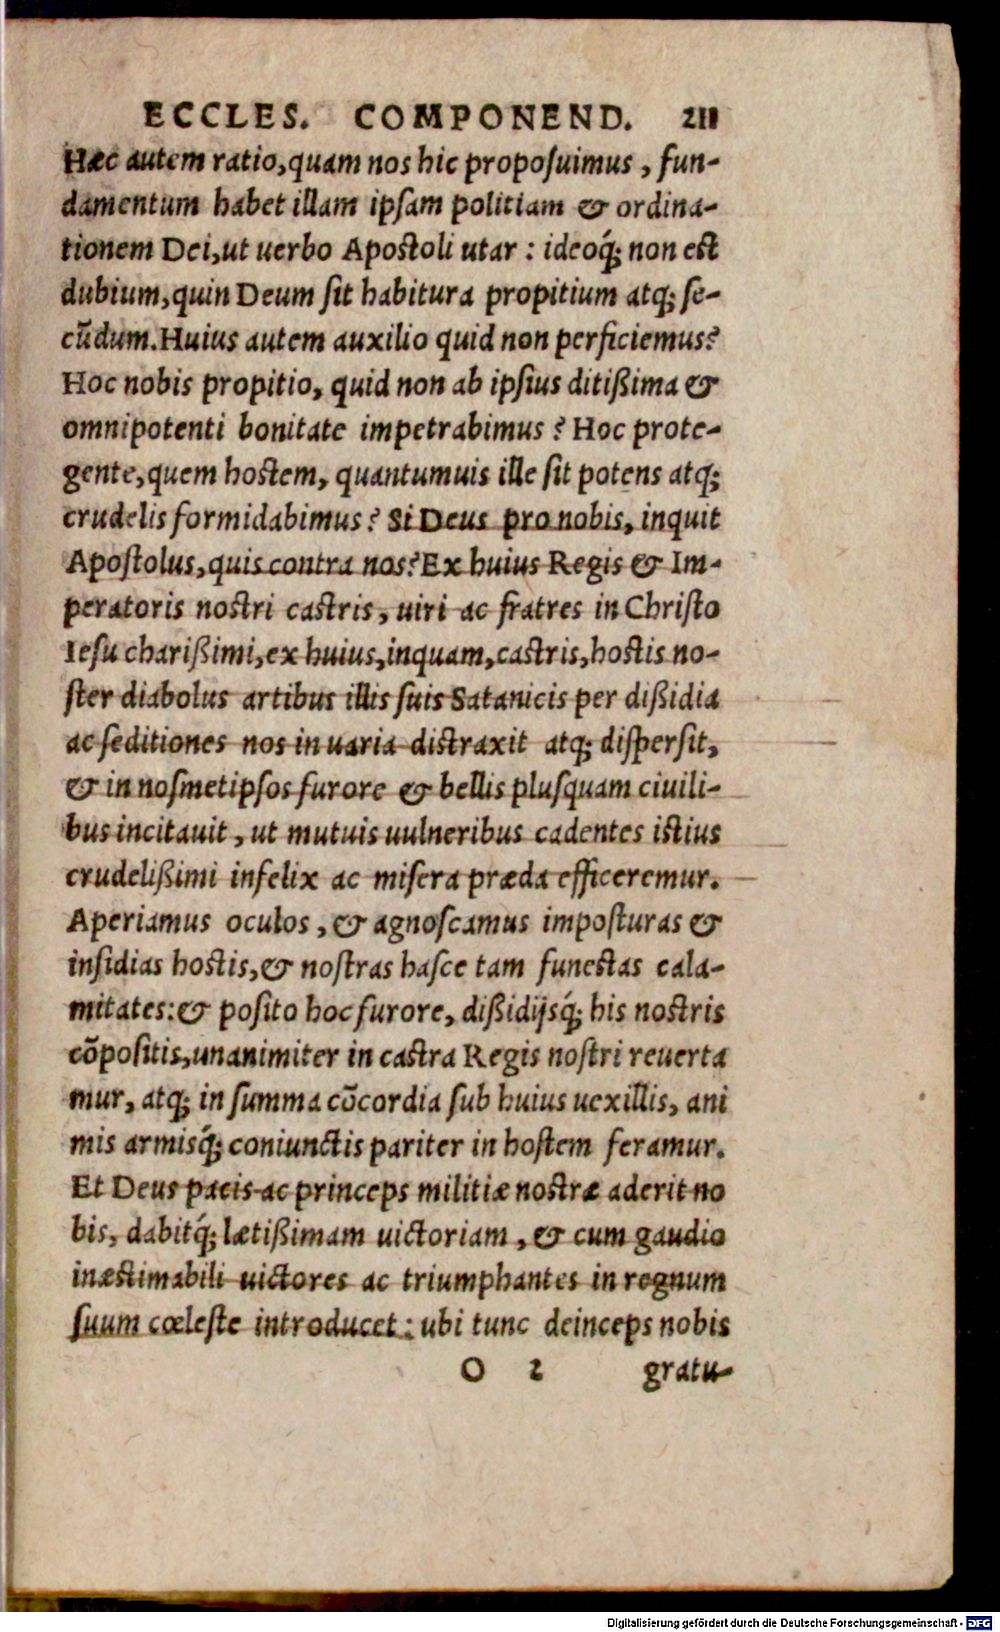 ECCLES. COMPONEND. 211
Hæc autem ratio, quam nos hic proposuimus, fun-
damentum habet illam ipsam politiam & ordina-
tionem Dei, ut uerbo Apostoli utar: ideoq́; non est
dubium, quin Deum sit habitura propitium atq; se-
cũdum. Huius autem auxilio quid non perficiemus?
Hoc nobis propitio, quid non ab ipsius ditißima &
omnipotenti bonitate impetrabimus? Hoc prote-
gente, quem hostem, quantumuis ille sit potens atq;
crudelis formidabimus? Si Deus pro nobis, inquit
Apostolus, quis contra nos? Ex huius Regis & Im-
peratoris nostri castris, uiri ac fratres in Christo
Iesu charißimi, ex huius, inquam, castris, hostis no-
ster diabolus artibus illis suis Satanicis per dißidia
ac seditiones nos in uaria distraxit atq; dispersit,
& in nosmetipsos furore & bellis plusquam ciuili-
bus incitauit, ut mutuis uulneribus cadentes istius
crudelißimi infelix ac misera præda efficeremur.
Aperiamus oculos, & agnoscamus imposturas &
insidias hostis, & nostras hasce tam funestas cala-
mitates: & posito hoc furore, dißidijsq́; his nostris
cõpositis, unanimiter in castra Regis nostri reuerta
mur, atq; in summa cõcordia sub huius uexillis, ani
mis armisq́; coniunctis pariter in hostem feramur.
Et Deus pacis ac princeps militiæ nostræ aderit no
bis, dabitq́; lætißimam uictoriam, & cum gaudio
inæstimabili uictores ac triumphantes in regnum
suum cœleste introducet: ubi tunc deinceps nobis
O 2 gratu-
Digitalisierung gefördert durch die Deutsche Forschungsgemeinschaft - DFG